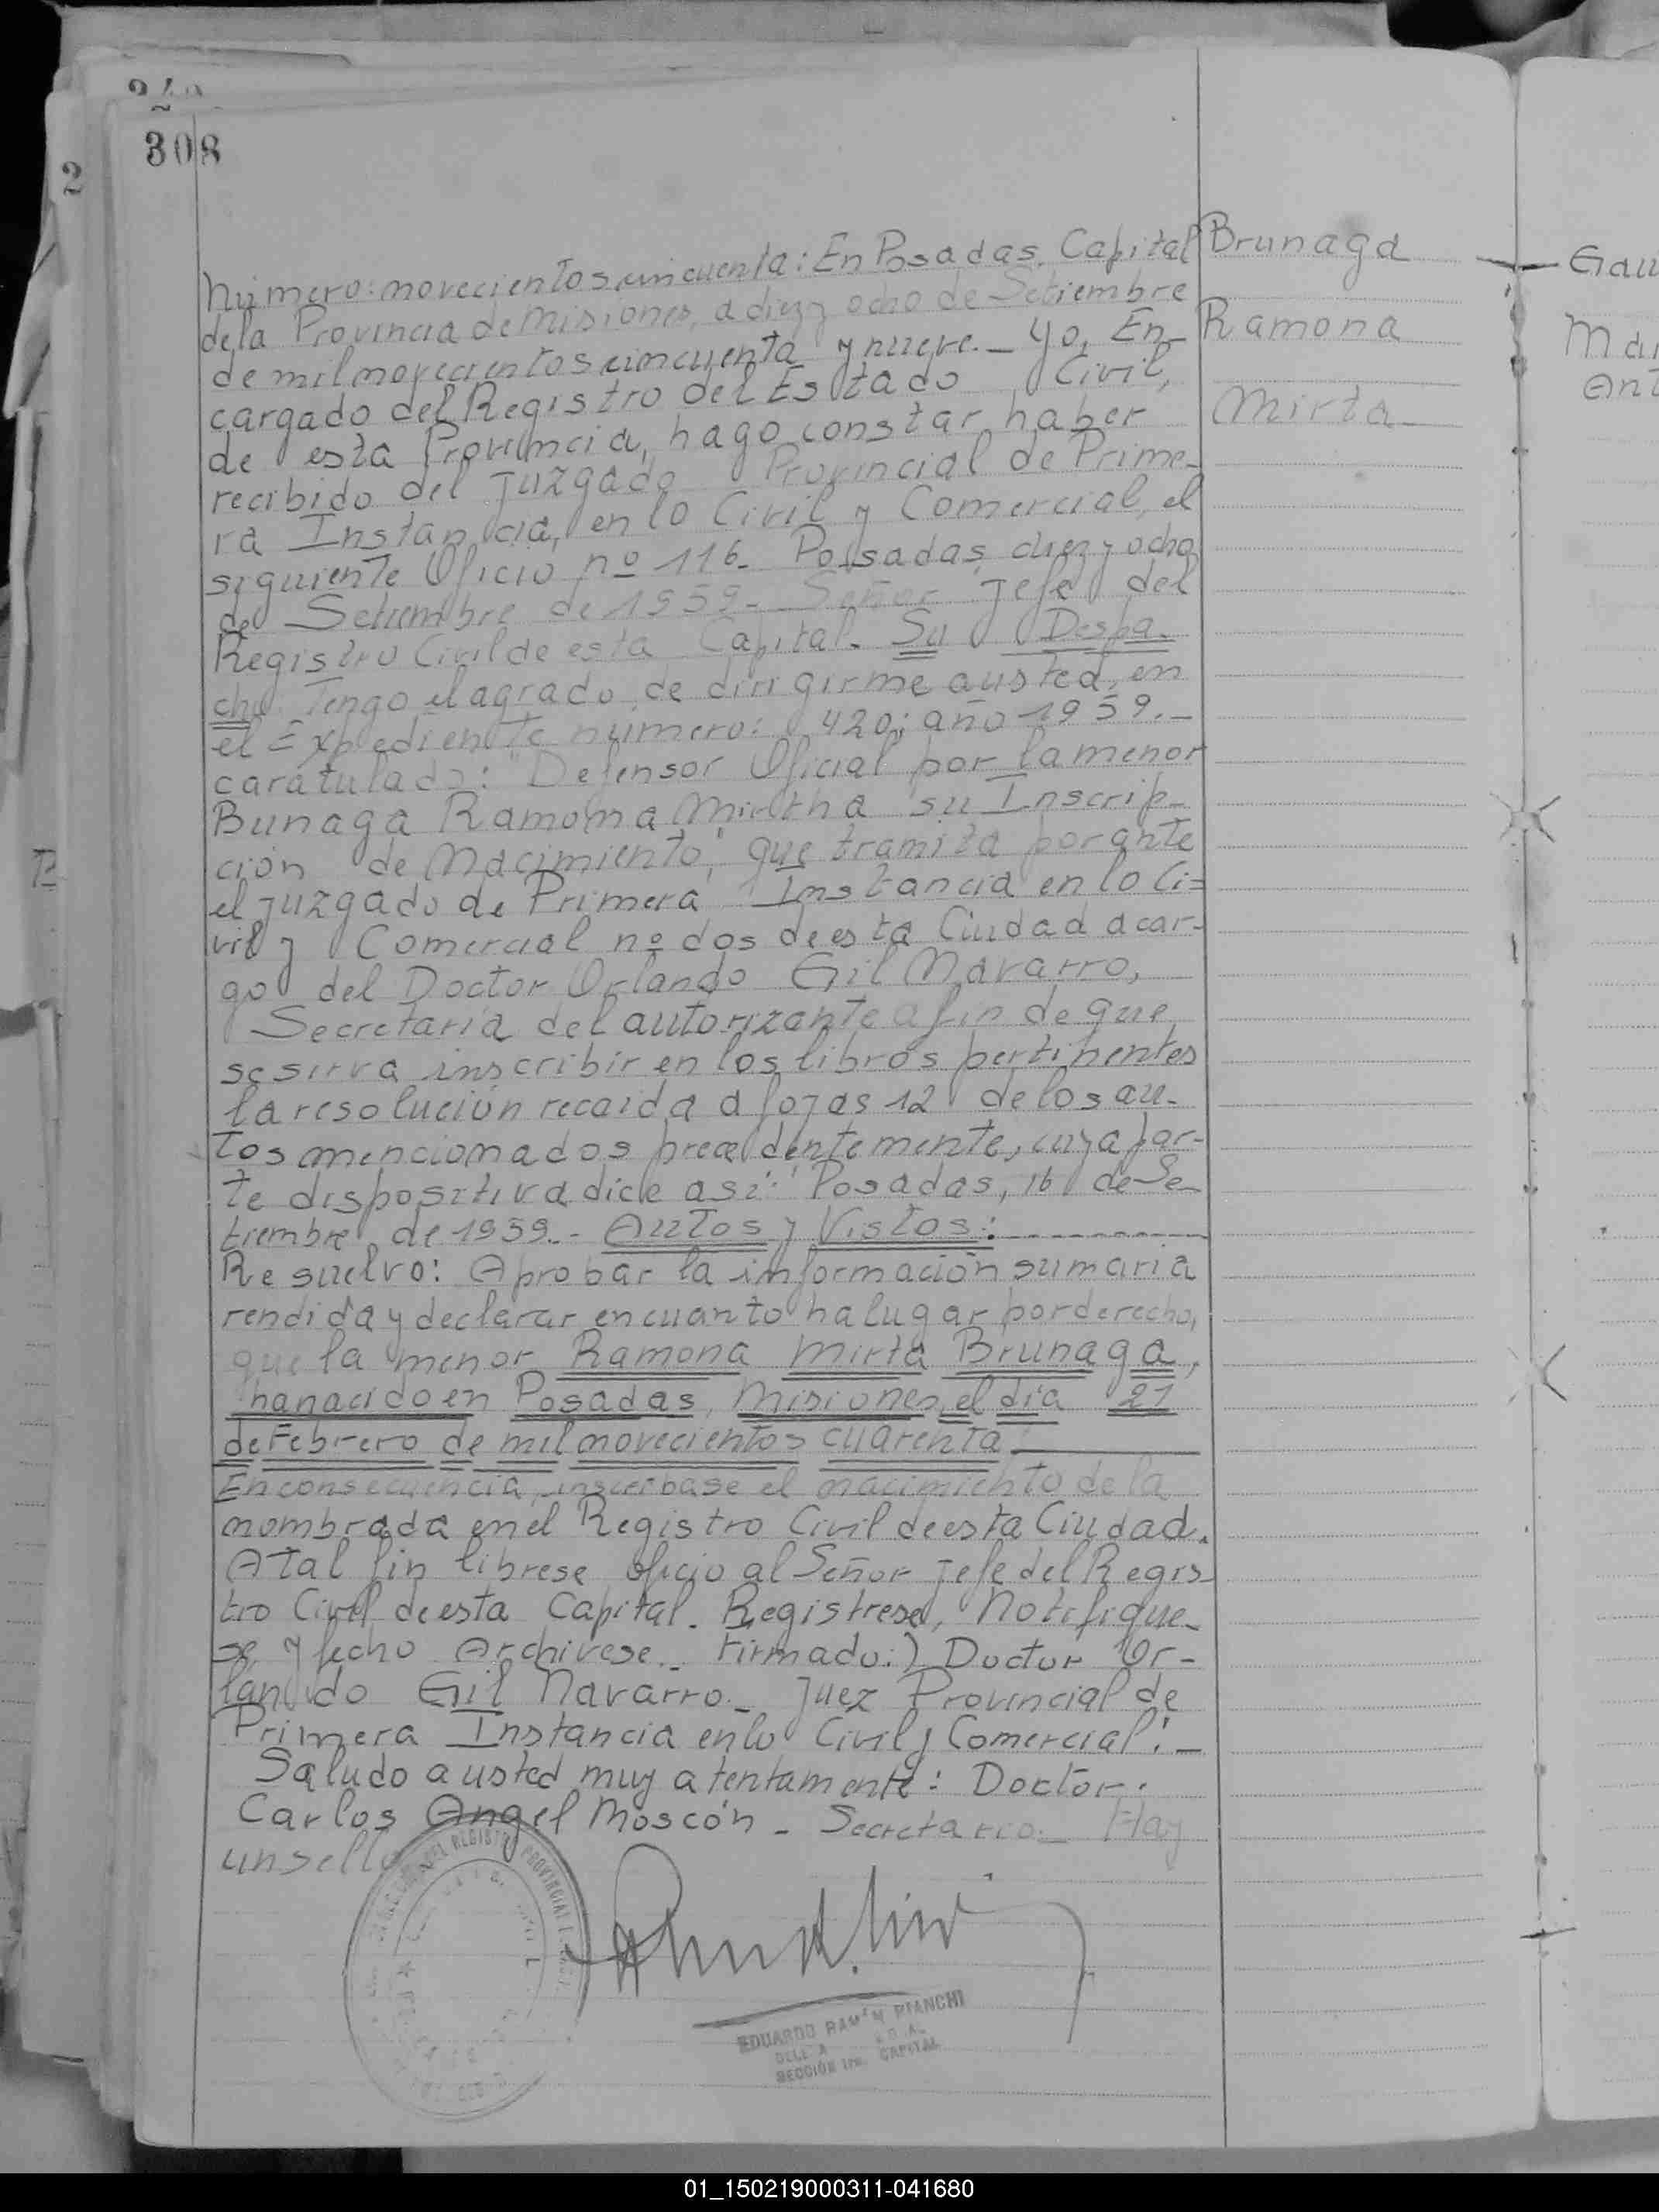 308
2
Número: novecientos cincuenta: En Posadas, Capital
de la Provincia de Misiones, a diez y ocho de Setiembre
de mil novecientos cincuenta y nueve.- Yo, En-
cargado del Registro del Estado Civil,
de esta Provincia, hago constar haber
recibido del Juzgado Provincial de Prime-
ra Instancia, en lo Civil y Comercial, el
siguiente Oficio nº 116- Posadas, diez y ocho
de Setiembre de 1959- Señor Jefe del
Registro Civil de esta Capital. Su Despa-
cho. Tengo el agrado de dirigirme a usted, en
el Expediente número: 420; año 1959.-
caratulado: "Defensor Oficial por la menor
Bunaga Ramona Mirtha su Inscrip-
ción de Nacimiento", que tramita por ante
el Juzgado de Primera Instancia en lo Ci=
vil y Comercial nº dos de esta Ciudad a car-
go del Doctor Orlando Gil Navarro,
Secretaría del autorizante a fin de que
se sirva inscribir en los libros pertinentes
la resolución recaída a fojas 12 de los au-
tos mencionados precedentemente, cuya par-
te dispositiva dice así: "Posadas, 16 de Se-
tiembre de 1959.- Autos y Vistos: ----------
Resuelvo: Aprobar la información sumaria
rendida y declarar en cuanto ha lugar por derecho,
que la menor Ramona Mirta Brunaga,
ha nacido en Posadas, Misiones, el día 21
de Febrero de mil novecientos cuarenta.
En consecuencia, inscríbase el nacimiento de la
nombrada en el Registro Civil de esta Ciudad.
A tal fin líbrese oficio al Señor Jefe del Regis
tro Civil de esta Capital. Regístrese, Notifíque-
se y fecho Archívese.- Firmado:) Doctor Or-
lando Gil Navarro.- Juez Provincial de
Primera Instancia en lo Civil y Comercial".-
Saludo a usted muy atentamente: Doctor:
Carlos Angel Moscón - Secretario.- Hay
un sello
EDUARDO RAMÓN PIANCHI
SECCIÓN 1ra. CAPITAL
Brunaga
Ramona
Mirta
Gau
Mar
Ant
01_150219000311-041680